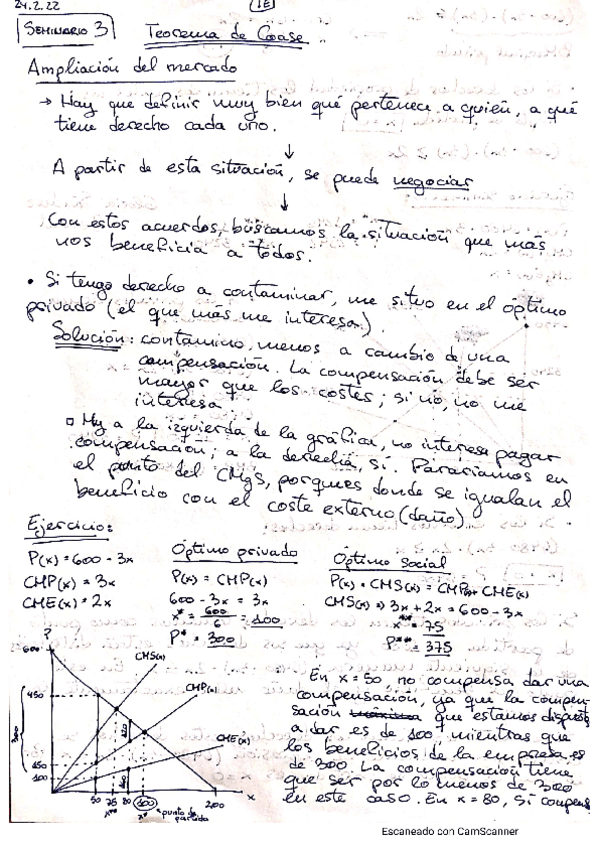 24.2.22
1E
SEMINARIO 3
Teorema de Coase
Ampliación del mercado
→ Hay que definir muy bien qué pertenece a quién, a qué
tiene derecho cada uno.
↓
A partir de esta situación, se puede negociar
↓
Con estos acuerdos, buscamos la situación que más
nos beneficia a todos.
• Si tengo derecho a contaminar, me sitúo en el óptimo
privado (el que más me interesa).
Solución: contamino menos a cambio de una
compensación. La compensación debe ser
mayor que los costes; si no, no me
interesa
▫ Muy a la izquierda de la gráfica, no interesa pagar
compensación; a la derecha, sí. Pararíamos en
el punto del CMgS, porque es donde se igualan el
beneficio con el coste externo (daño).
Ejercicio:
P(x) = 600 - 3x
CMP(x) = 3x
CME(x) = 2x
Óptimo privado
P(x) = CMP(x)
600 - 3x = 3x
x* = 600/6 = 100
P* = 300
Óptimo social
P(x) = CMS(x) = CMP(x) + CME(x)
CMS(x) ⇒ 3x + 2x = 600 - 3x
x** = 75
P** = 375
P
600
CMS(x)
CMP(x)
450
300
CME(x)
150
100
50 75 80 100 200 x
x** x* punto de
partida
En x = 50, no compensa dar una
compensación, ya que la compen-
sación que estamos dispuestos
a dar es de 100 mientras que
los beneficios de la empresa es
de 300. La compensación tiene
que ser por lo menos de 300
en este caso. En x = 80, sí compens
Escaneado con CamScanner